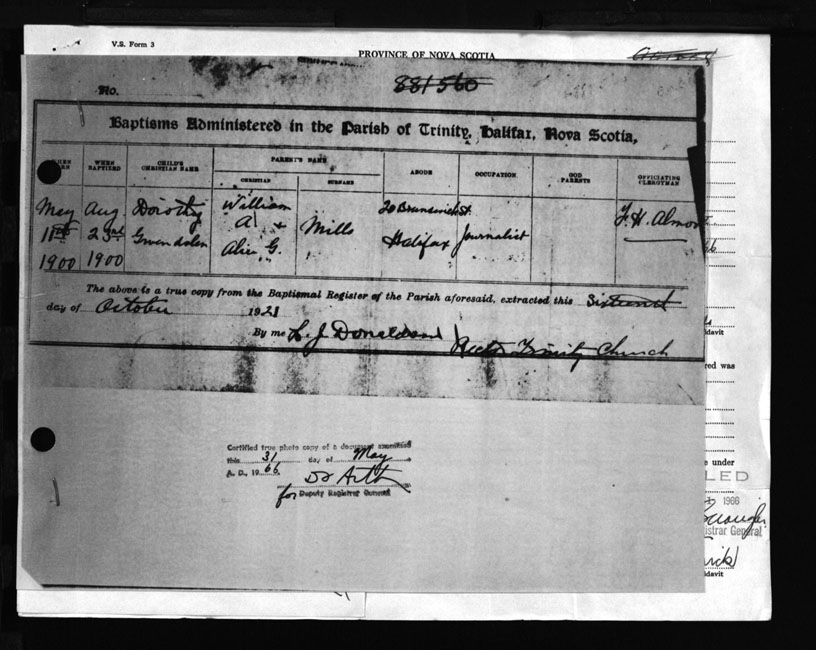 V.S. Form 3
PROVINCE OF NOVA SCOTIA
No. 881560
Baptisms Administered in the Parish of Trinity, Halifax, Nova Scotia,
WHEN BORN WHEN BAPTIZED CHILD'S CHRISTIAN NAME PARENT'S NAME ABODE OCCUPATION GOD PARENTS OFFICIATING CLERGYMAN
CHRISTIAN SURNAME
May Aug Dorothy William 20 Brunswick St. F. H. Almon
11th 23rd Gwendolen A. + Mills Halifax Journalist
1900 1900 Alice G.
The above is a true copy from the Baptismal Register of the Parish aforesaid, extracted this Sixteenth
day of October 1921
By me L. J. Donaldson Rector Trinity Church
Certified true photo copy of a document examined
this 31 day of May
A. D., 1966
for Deputy Registrar General
davit
red was
e under
LED
1966
istrar General
davit